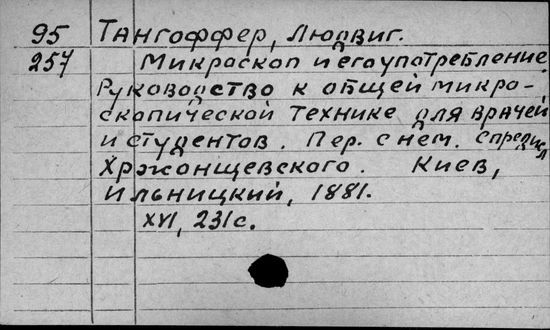 95 Тангоффер, Людвиг.
257 Микроскоп и его употребление.
Руководство к общей микро-
скопической технике для врачей
и студентов. Пер. с нем. с предисл
Хржонщевского. Киев,
Ильницкий, 1881.
XVI, 231 с.